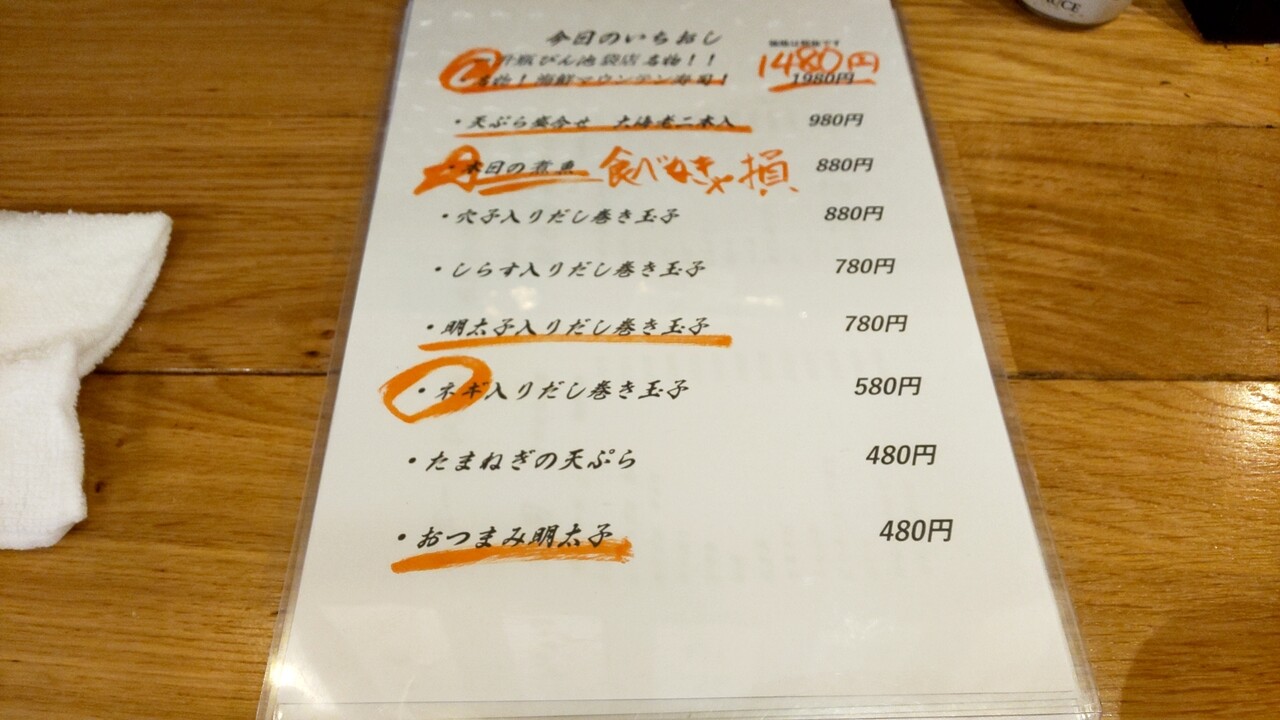 今日のいちおし
価格は税抜です
びん池袋店名物！！
1480円
名物！海鮮マウンテン寿司！ 1980円
・天ぷら盛合せ 大海老二本入 980円
・本日の煮魚 食べなきゃ損 880円
・穴子入りだし巻き玉子 880円
・しらす入りだし巻き玉子 780円
・明太子入りだし巻き玉子 780円
・ネギ入りだし巻き玉子 580円
・たまねぎの天ぷら 480円
・おつまみ明太子 480円